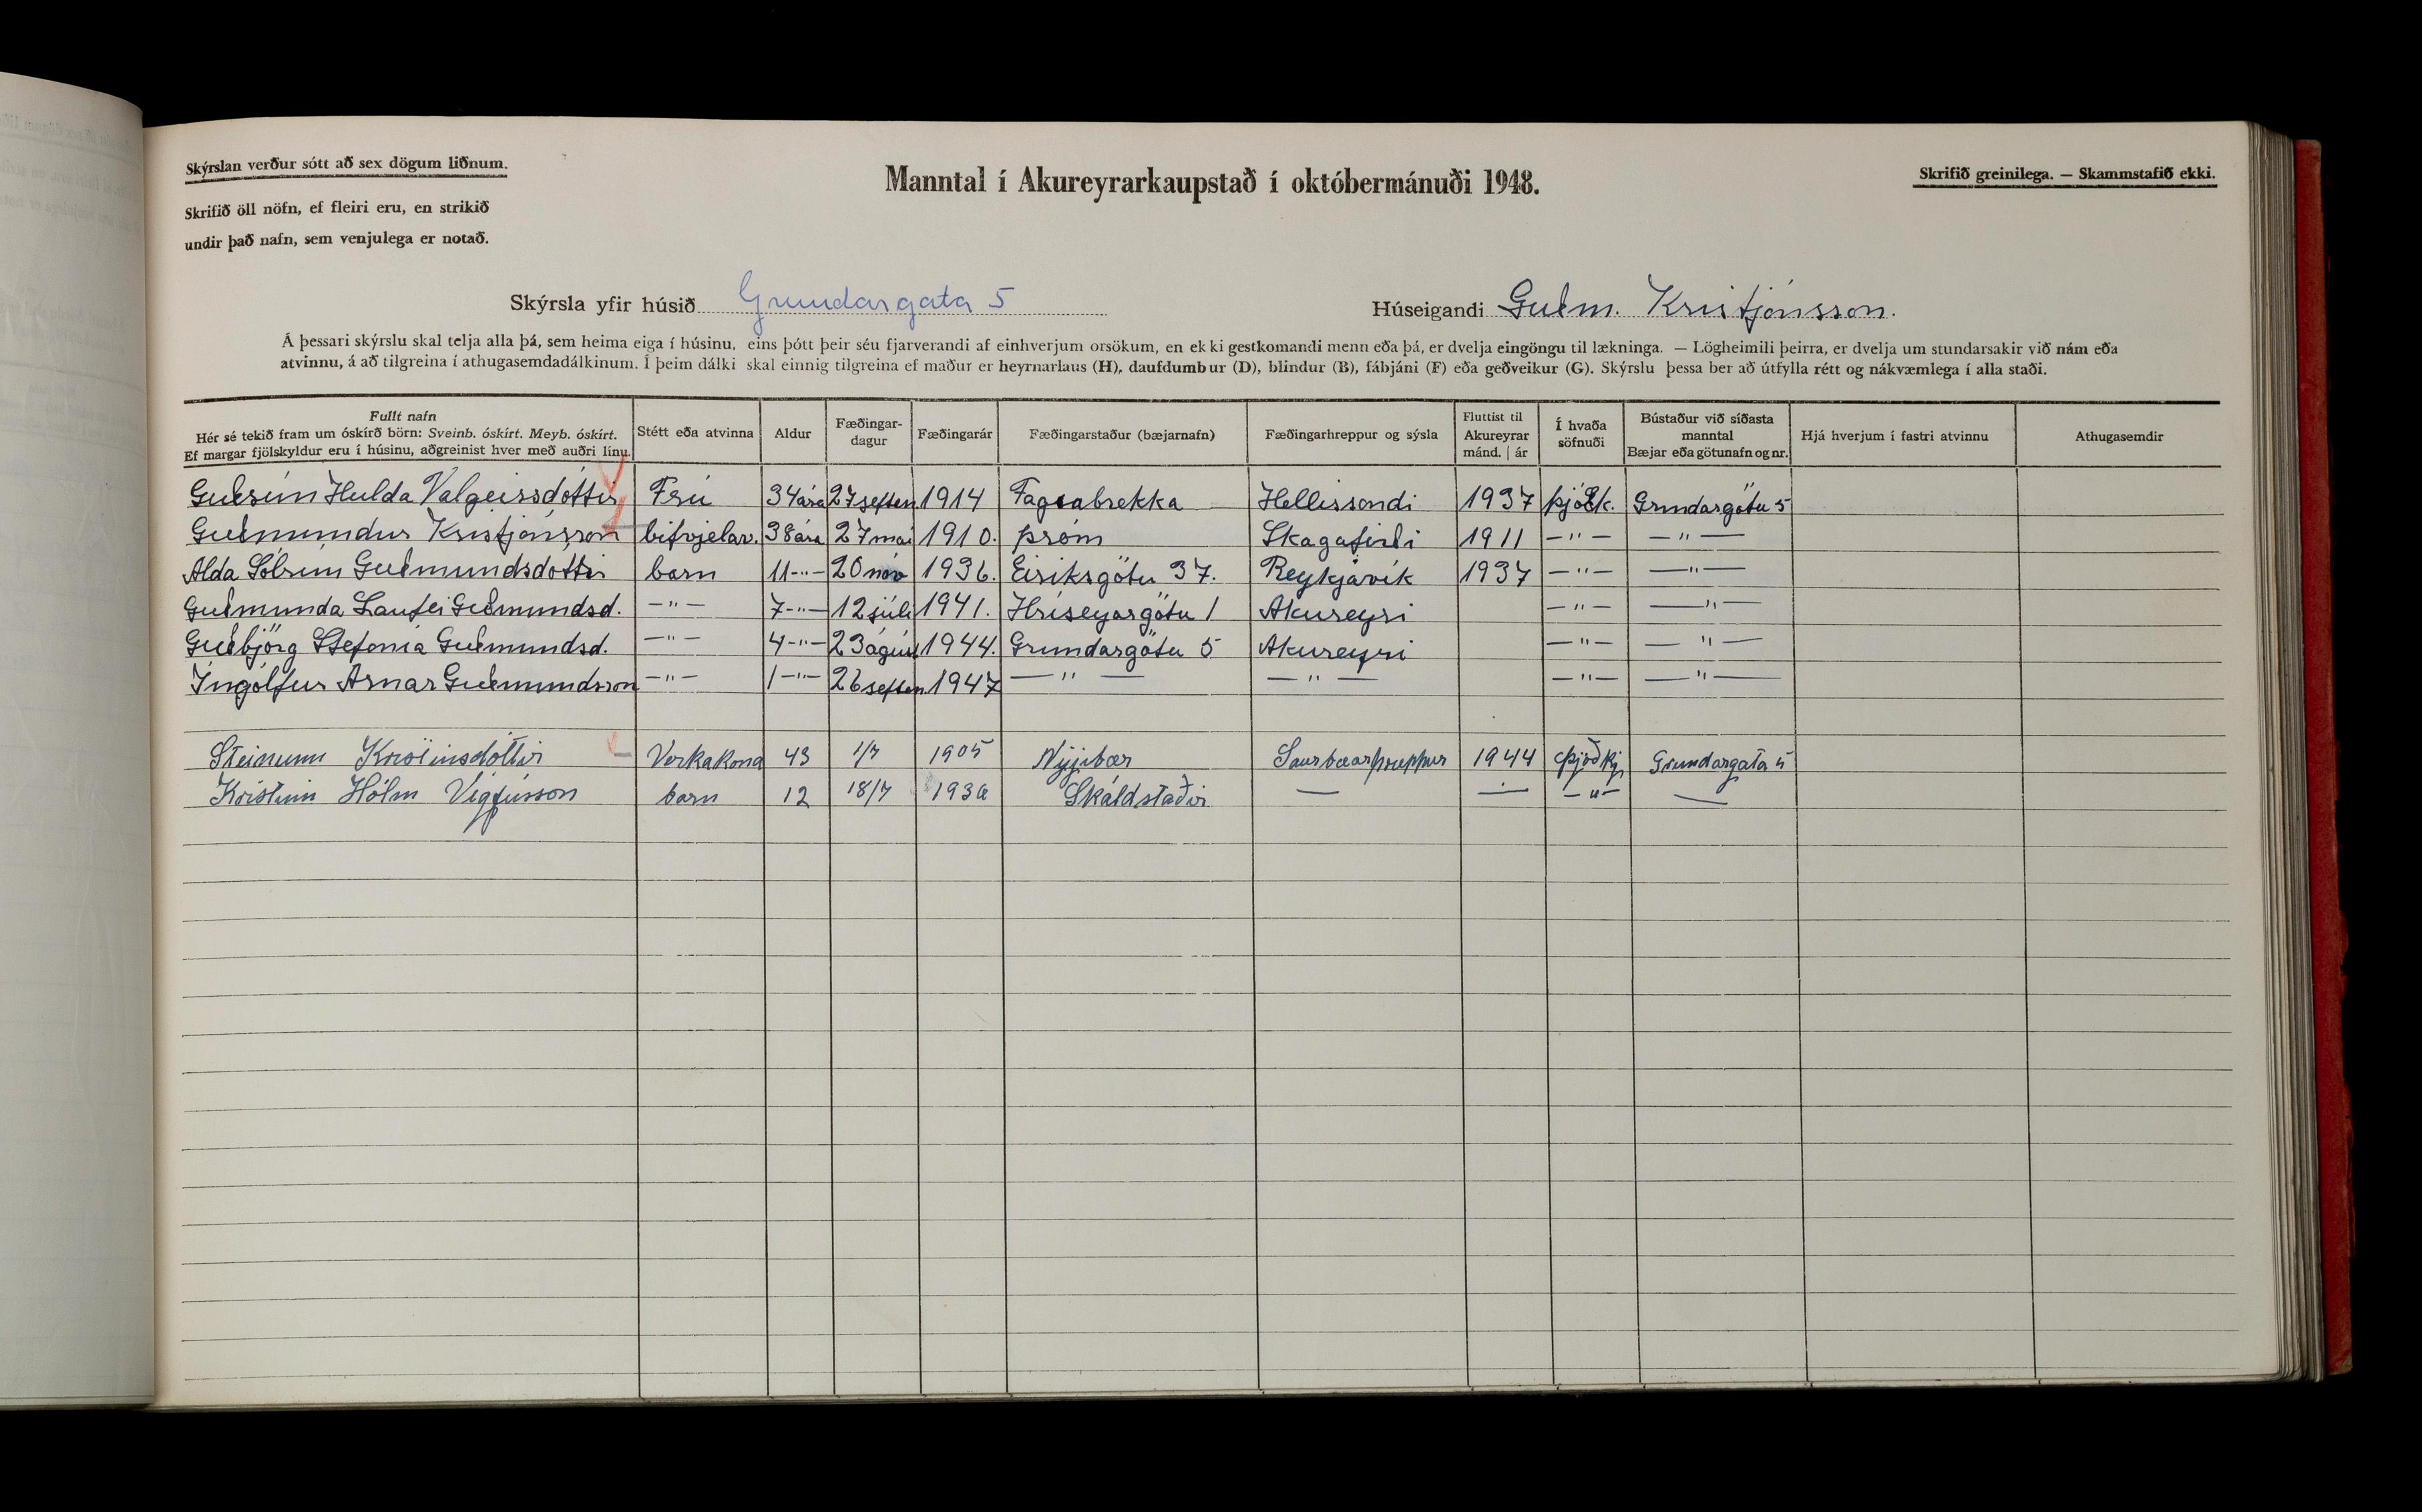 Skýrslan verður sótt að sex dögum liðnum.
Skrifið öll nöfn, ef fleiri eru, en strikið
undir það nafn, sem venjulega er notað.
Manntal í Akureyrarkaupstað í októbermánuði 1948.
Skrifið greinilega. — Skammstafið ekki.
Skýrsla yfir húsið Grundargata 5
Húseigandi Guðm. Kristjónsson.
Á þessari skýrslu skal telja alla þá, sem heima eiga í húsinu, eins þótt þeir séu fjarverandi af einhverjum orsökum, en ekki gestkomandi menn eða þá, er dvelja eingöngu til lækninga. — Lögheimili þeirra, er dvelja um stundarsakir við nám eða
atvinnu, á að tilgreina í athugasemdadálkinum. Í þeim dálki skal einnig tilgreina ef maður er heyrnarlaus (H), daufdumbur (D), blindur (B), fábjáni (F) eða geðveikur (G). Skýrslu þessa ber að útfylla rétt og nákvæmlega í alla staði.
Fullt nafn
Hér sé tekið fram um óskírð börn: Sveinb. óskírt. Meyb. óskírt.
Ef margar fjölskyldur eru í húsinu, aðgreinist hver með auðri línu.
Stétt eða atvinna
Aldur
Fæðingar-
dagur
Fæðingarár
Fæðingarstaður (bæjarnafn)
Fæðingarhreppur og sýsla
Fluttist til
Akureyrar
mánd. | ár
Í hvaða
söfnuði
Bústaður við síðasta
manntal
Bæjar eða götunafn og nr.
Hjá hverjum í fastri atvinnu
Athugasemdir
Guðrún Hulda Valgeirsdóttir Frú 34 ára 27 septem 1914 Fagrabrekka Hellissandi 1937 Þjóðk. Grundargötu 5
Guðmundur Kristjónsson bifvjelav. 38 ára 27 maí 1910. Þröm Skagafirði 1911 —"— —"—
Alda Sólrún Guðmundsdóttir barn 11 —"— 20 nóv 1936. Eiríksgötu 37. Reykjavík 1937 —"— —"—
Guðmunda Laufei Guðmundsd. —"— 7 —"— 12 júlí 1941. Hríseyargötu 1 Akureyri —"— —"—
Guðbjörg Stefanía Guðmundsd. —"— 4 —"— 23 ágúst 1944. Grundargötu 5 Akureyri —"— —"—
Ingólfur Arnar Guðmundsson —"— 1 —"— 26 septem 1947 —"— —"— —"— —"—
Steinunn Kristinsdóttir Verkakona 43 1/7 1905 Nýjibær Saurbæarhreppur 1944 Þjóðkj. Grundargata 5
Kristinn Hólm Vigfússon barn 12 18/7 1936 Skáldstaðir — — —"— —